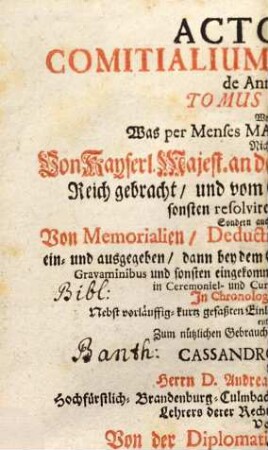 ACTO
COMITIALIUM
de Ann
TOMUS
Was per Menses MA
Von Kayserl. Majest. an d
Reich gebracht / und vom
sonsten resolvire
Sondern auc
Von Memorialien / Deduct
ein- und ausgegeben / dann bey dem
Gravaminibus und sonsten eingekomm
in Ceremoniel- und Cur
Bibl:
In Chronolog
Nebst vorläuffig- kurtz gefaßten Einl
Zum nützlichen Gebrauch
Banth:
CASSANDRO
Herrn D. Andrea
Hochfürstlich- Brandenburg- Culmbac
Lehrers derer Rech
Von der Diplomati